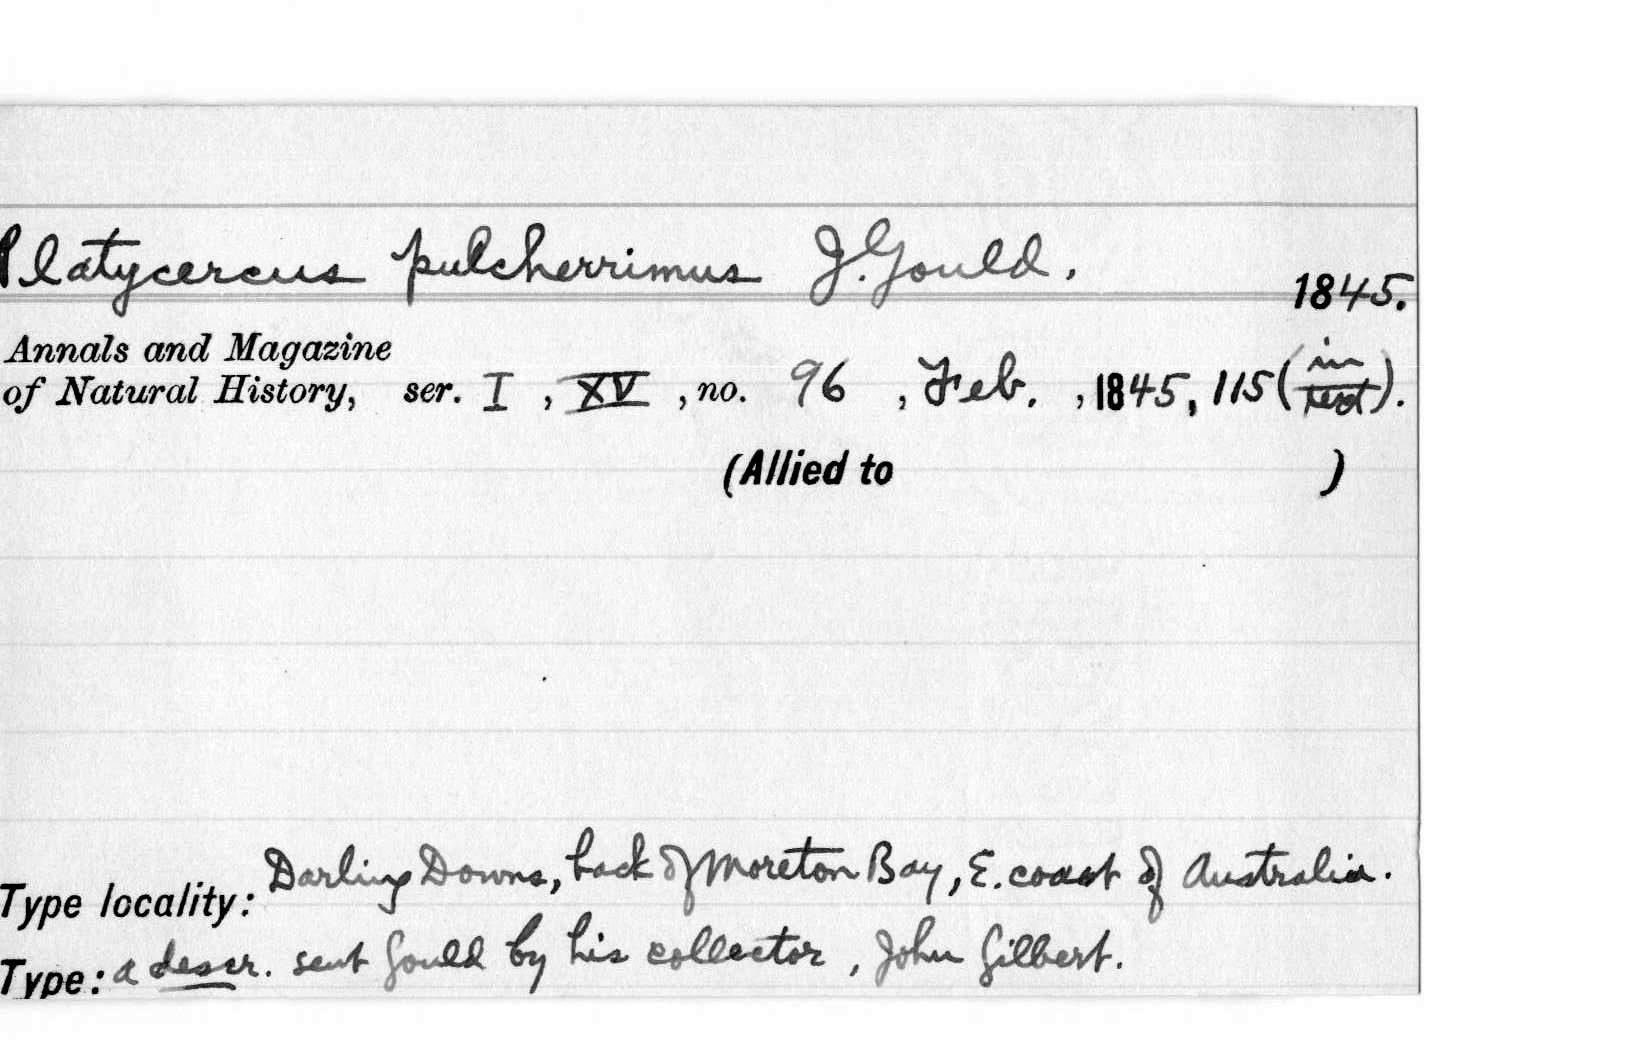 Platycercus pulcherrimus J. Gould.
1845.
Annals and Magazine
of Natural History, ser. I, XV, no. 96, Feb., 1845, 115 (in text).
(Allied to )
Type locality: Darling Downs, back of Moreton Bay, E. coast of Australia.
Type: a descr. sent Gould by his collector, John Gilbert.